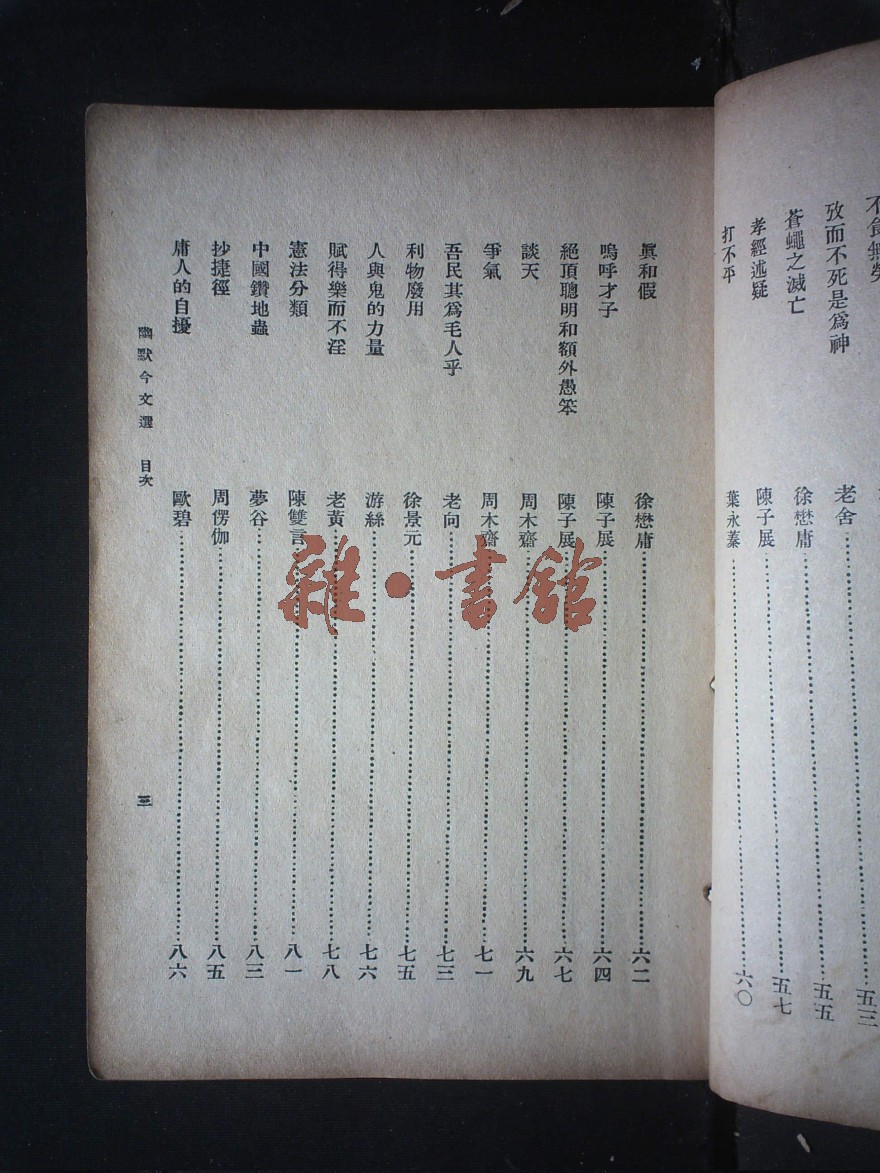 攷而不死是爲神 老舍 五三
蒼蠅之滅亡 徐懋庸 五五
孝經述疑 陳子展 五七
打不平 葉永蓁 六〇
眞和假 徐懋庸 六二
嗚呼才子 陳子展 六四
絕頂聰明和額外愚笨 陳子展 六七
談天 周木齋 六九
爭氣 周木齋 七一
吾民其爲毛人乎 老向 七三
利物廢用 徐景元 七五
人與鬼的力量 游絲 七六
賦得樂而不淫 老黃 七八
憲法分類 陳雙言 八一
中國鑽地蟲 夢谷 八三
抄捷徑 周楞伽 八五
庸人的自擾 歐碧 八六
幽默今文選 目次 三
雜·書館